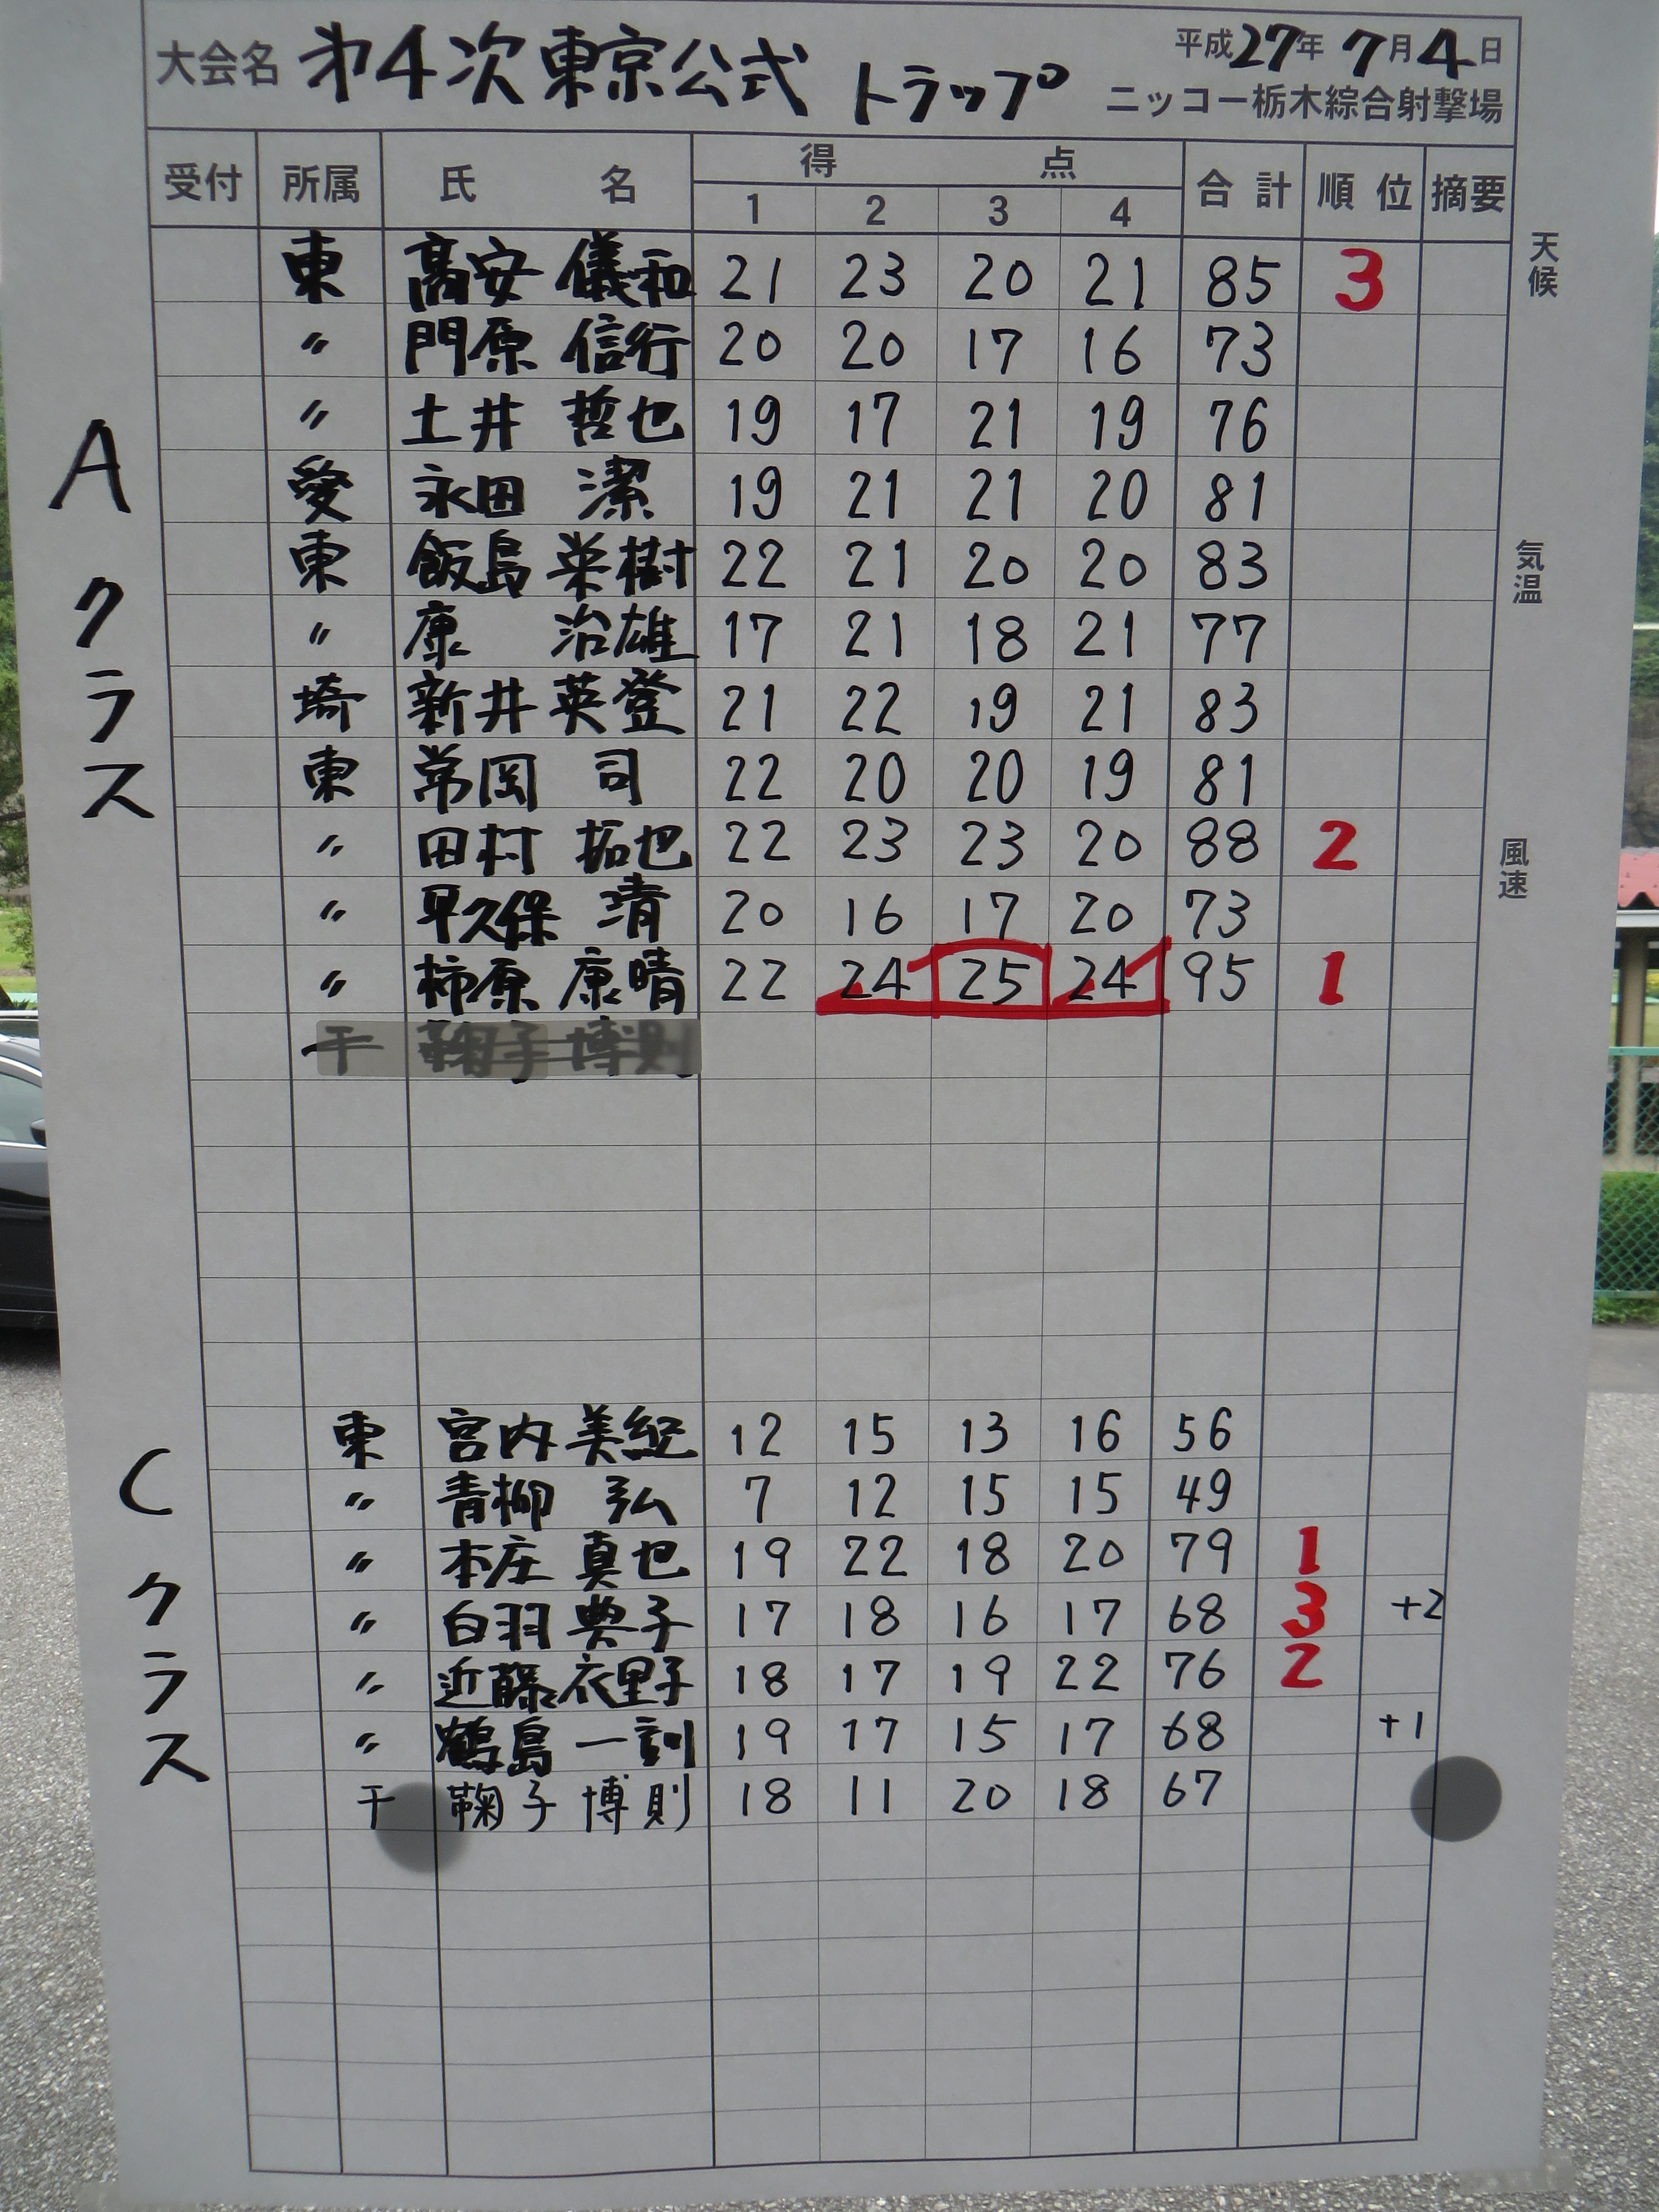 大会名 第4次東京公式 トラップ 平成27年7月4日
ニッコー栃木綜合射撃場
受付 所属 氏名 得点 合計 順位 摘要
1 2 3 4
天候
気温
風速
Aクラス
東 髙安 儀和 21 23 20 21 85 3
〃 門原 信行 20 20 17 16 73
〃 土井 哲也 19 17 21 19 76
愛 永田 潔 19 21 21 20 81
東 飯島 栄樹 22 21 20 20 83
〃 康 治雄 17 21 18 21 77
埼 新井 英登 21 22 19 21 83
東 常岡 司 22 20 20 19 81
〃 田村 拓也 22 23 23 20 88 2
〃 平久保 清 20 16 17 20 73
〃 柿原 康晴 22 24 25 24 95 1
千 鞠子 博則
Cクラス
東 宮内 美紀 12 15 13 16 56
〃 青柳 弘 7 12 15 15 49
〃 本庄 真也 19 22 18 20 79 1
〃 白羽 典子 17 18 16 17 68 3 +2
〃 近藤 衣里子 18 17 19 22 76 2
〃 鶴島 一訓 19 17 15 17 68 +1
千 鞠子 博則 18 11 20 18 67